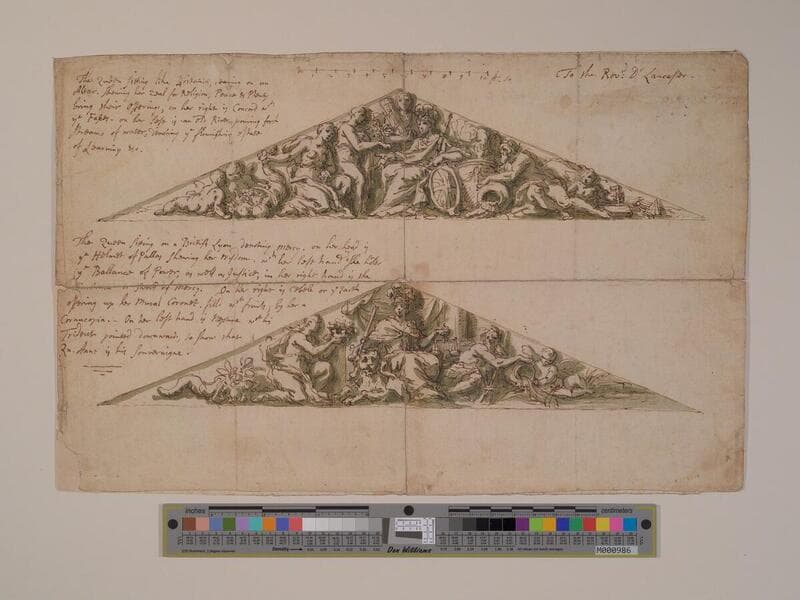 The Queen sitting like Britania, leaning on an
Altar, shewing her zeal for Religion, Peace & Plenty
bring their Offerings, on her right is Concord wth
ye Fasces. on her left is an Old River, pouring forth
streams of water, denoting ye flourishing state
of Learning &c.
To the Revd. Dr Lancaster.
The Queen sitting on a British Lyon, denoting Mercy. on her head is
ye Helmet of Pallas shewing her Wisdom. wth her left hand she holds
ye Ballance of Power, as well as Justice, in her right hand is the
of Mercy. On her right is Cybele or ye Earth
offering up her Mural Coronet, fill'd wth fruits, by her a
Cornucopia. On her left hand is Neptune wth his
Trident pointed downwards, to show that
Qn. Anne is his Souveraigne.
inches
centimeters
Density
Don Williams
M000986